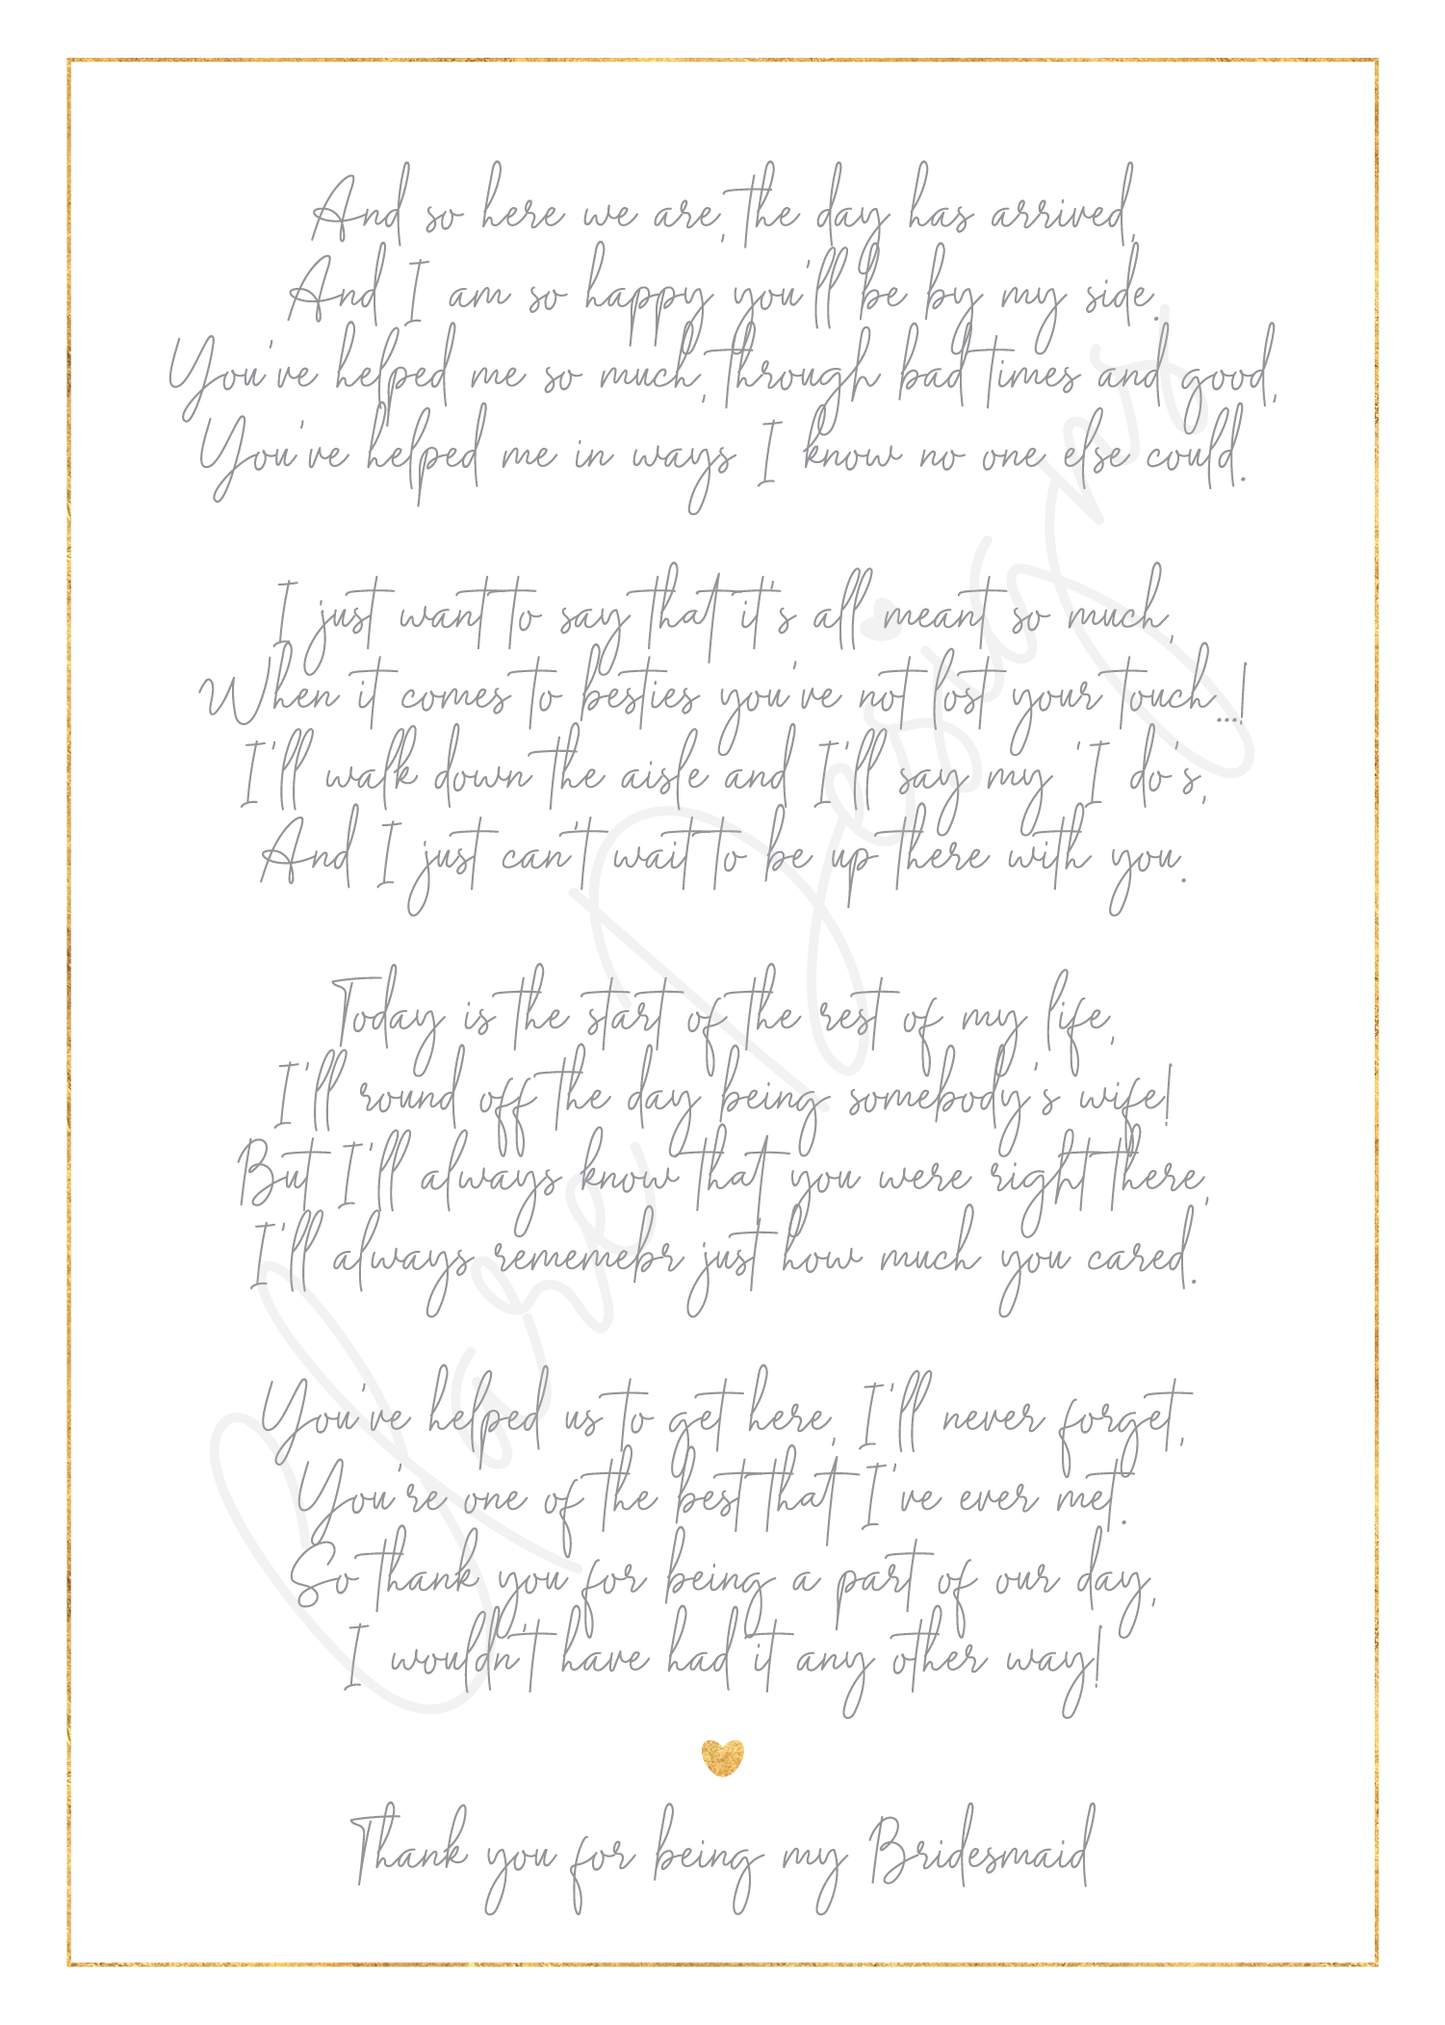 And so here we are, the day has arrived,
And I am so happy you'll be by my side.
You've helped me so much, through bad times and good,
You've helped me in ways I know no one else could.
I just want to say that it's all meant so much,
When it comes to besties you've not lost your touch...!
I'll walk down the aisle and I'll say my 'I do's,
And I just can't wait to be up there with you.
Today is the start of the rest of my life,
I'll round off the day being somebody's wife!
But I'll always know that you were right there,
I'll always rememebr just how much you cared.
You've helped us to get here, I'll never forget,
You're one of the best that I've ever met.
So thank you for being a part of our day,
I wouldn't have had it any other way!
Thank you for being my Bridesmaid
Clare Designs